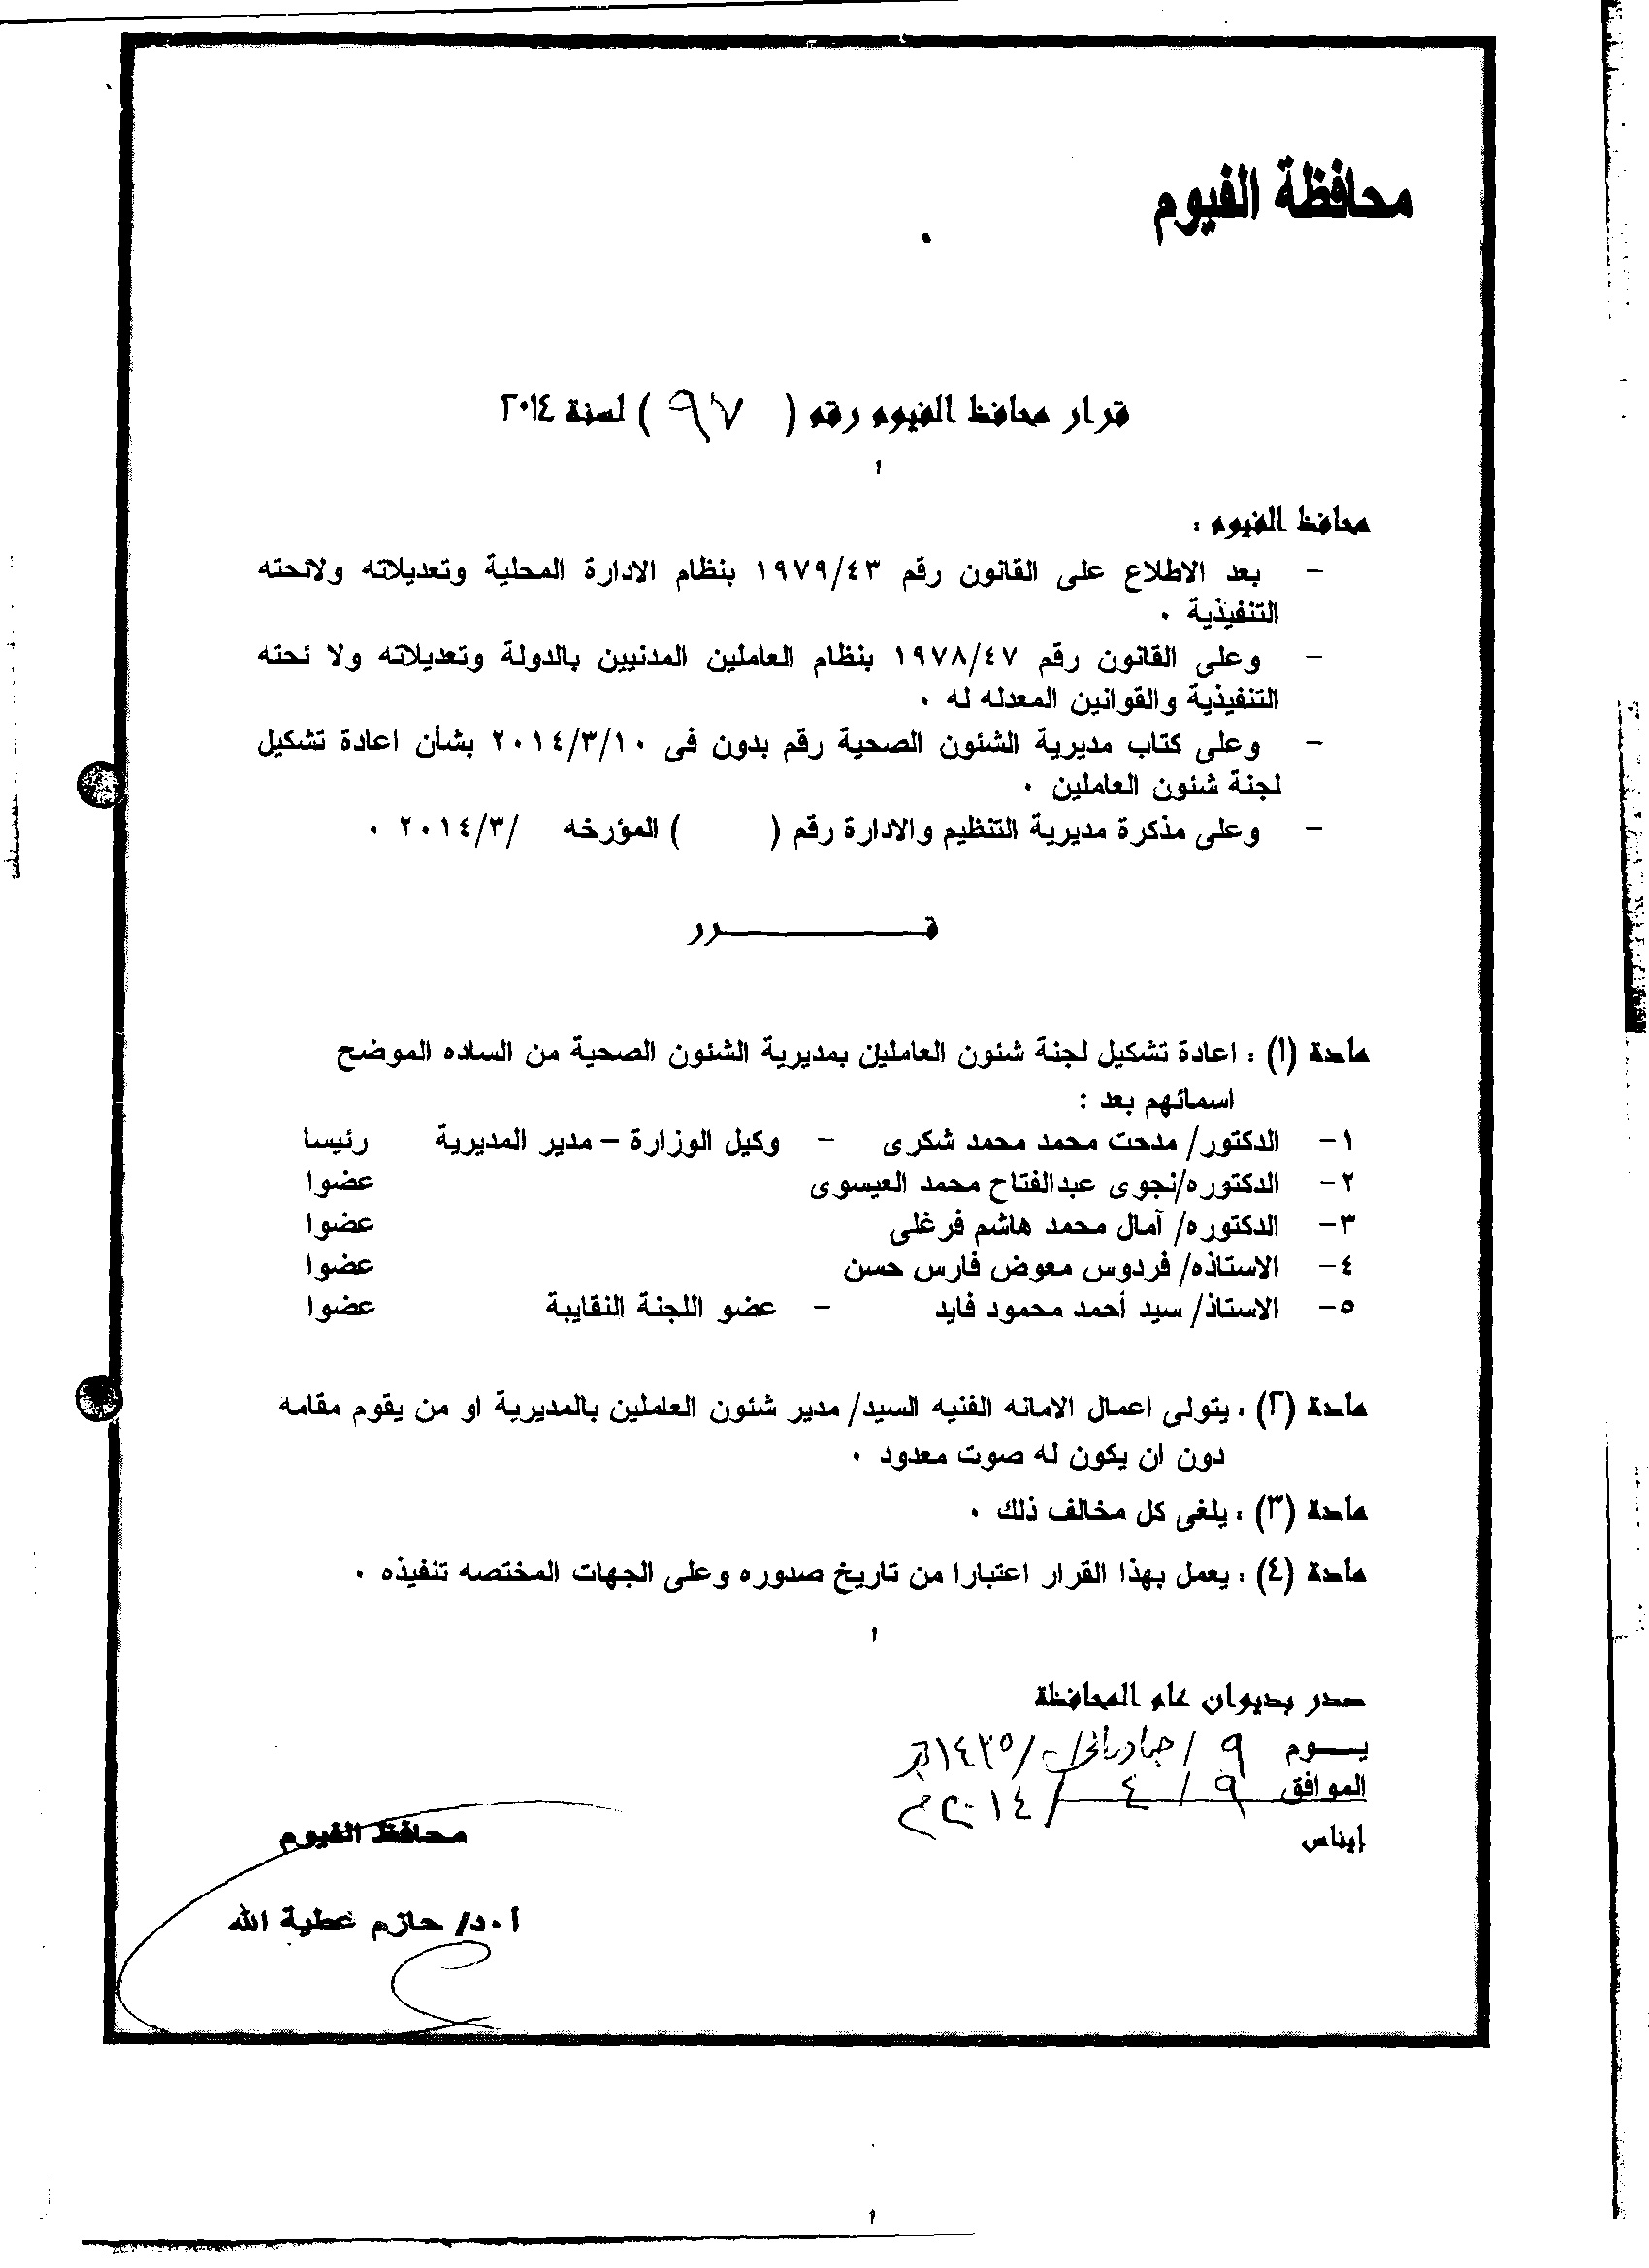 محافظة الفيوم
قرار محافظ الفيوم رقم ( ٩٧ ) لسنة ٢٠١٤
محافظ الفيوم :
- بعد الاطلاع على القانون رقم ١٩٧٩/٤٣ بنظام الادارة المحلية وتعديلاته ولائحته
التنفيذية ٠
- وعلى القانون رقم ١٩٧٨/٤٧ بنظام العاملين المدنيين بالدولة وتعديلاته ولا ئحته
التنفيذية والقوانين المعدله له ٠
- وعلى كتاب مديرية الشئون الصحية رقم بدون فى ٢٠١٤/٣/١٠ بشأن اعادة تشكيل
لجنة شئون العاملين ٠
- وعلى مذكرة مديرية التنظيم والادارة رقم ( ) المؤرخه /٢٠١٤/٣ ٠
قــــــــــــرر
مادة (١) : اعادة تشكيل لجنة شئون العاملين بمديرية الشئون الصحية من الساده الموضح
اسمائهم بعد :
١- الدكتور/ مدحت محمد محمد شكرى - وكيل الوزارة - مدير المديرية رئيسا
٢- الدكتوره/نجوى عبدالفتاح محمد العيسوى عضوا
٣- الدكتوره/ آمال محمد هاشم فرغلى عضوا
٤- الاستاذه/ فردوس معوض فارس حسن عضوا
٥- الاستاذ/ سيد أحمد محمود فايد - عضو اللجنة النقابية عضوا
مادة (٢) : يتولى اعمال الامانه الفنيه السيد/ مدير شئون العاملين بالمديرية او من يقوم مقامه
دون ان يكون له صوت معدود ٠
مادة (٣) : يلغى كل مخالف ذلك ٠
مادة (٤) : يعمل بهذا القرار اعتبارا من تاريخ صدوره وعلى الجهات المختصه تنفيذه ٠
صدر بديوان عام المحافظة
يـــوم ٩ / / ١٤٣٥هـ
الموافق ٩ / ٤ / ٢٠١٤م
إيناس
محافظ الفيوم
أ٠د/ حازم عطية الله